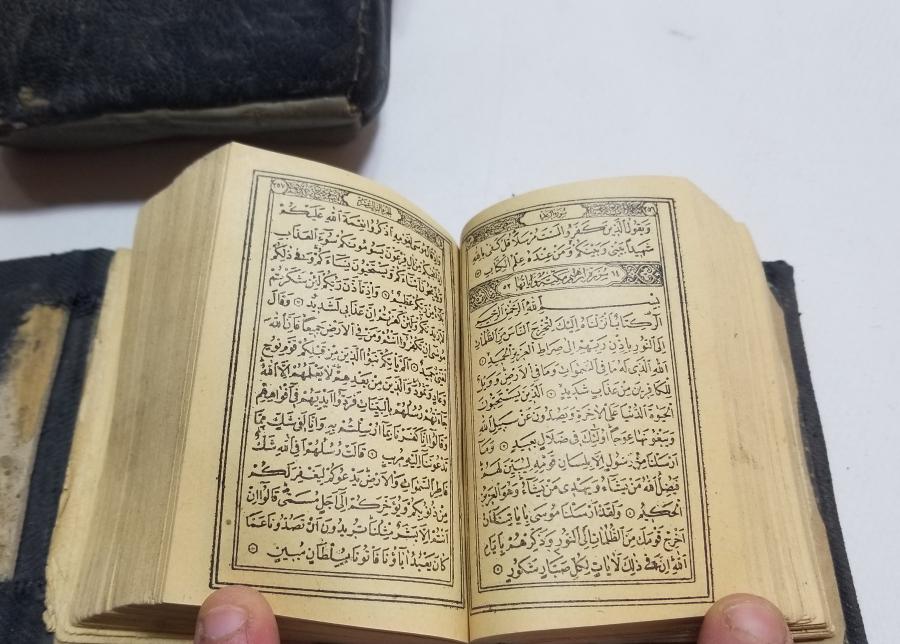 ٢٥٦
وَيَقُولُ الَّذِينَ كَفَرُوا لَسْتَ مُرْسَلًا قُلْ كَفٰى بِاللّٰهِ
شَهِيدًا بَيْنِي وَبَيْنَكُمْ وَمَنْ عِنْدَهُ عِلْمُ الْكِتَابِ
سورة ابراهيم مكية وآياتها ٥٢
بِسْمِ اللّٰهِ الرَّحْمٰنِ الرَّحِيمِ
الٓرٰ كِتَابٌ اَنْزَلْنَاهُ اِلَيْكَ لِتُخْرِجَ النَّاسَ مِنَ الظُّلُمَاتِ
اِلَى النُّورِ بِاِذْنِ رَبِّهِمْ اِلٰى صِرَاطِ الْعَزِيزِ الْحَمِيدِ
اَللّٰهِ الَّذِي لَهُ مَا فِي السَّمٰوَاتِ وَمَا فِي الْاَرْضِ وَوَيْلٌ
لِلْكَافِرِينَ مِنْ عَذَابٍ شَدِيدٍ اَلَّذِينَ يَسْتَحِبُّونَ
الْحَيٰوةَ الدُّنْيَا عَلَى الْاٰخِرَةِ وَيَصُدُّونَ عَنْ سَبِيلِ اللّٰهِ
وَيَبْغُونَهَا عِوَجًا اُولٰئِكَ فِي ضَلَالٍ بَعِيدٍ وَمَا
اَرْسَلْنَا مِنْ رَسُولٍ اِلَّا بِلِسَانِ قَوْمِهِ لِيُبَيِّنَ لَهُمْ
فَيُضِلُّ اللّٰهُ مَنْ يَشَاءُ وَيَهْدِي مَنْ يَشَاءُ وَهُوَ الْعَزِيزُ
الْحَكِيمُ وَلَقَدْ اَرْسَلْنَا مُوسٰى بِاٰيَاتِنَا اَنْ
اَخْرِجْ قَوْمَكَ مِنَ الظُّلُمَاتِ اِلَى النُّورِ وَذَكِّرْهُمْ بِاَيَّامِ
اللّٰهِ اِنَّ فِي ذٰلِكَ لَاٰيَاتٍ لِكُلِّ صَبَّارٍ شَكُورٍ
٢٥٧
وَاِذْ قَالَ مُوسٰى لِقَوْمِهِ اذْكُرُوا نِعْمَةَ اللّٰهِ عَلَيْكُمْ
اِذْ اَنْجٰيكُمْ مِنْ اٰلِ فِرْعَوْنَ يَسُومُونَكُمْ سُوءَ الْعَذَابِ
وَيُذَبِّحُونَ اَبْنَاءَكُمْ وَيَسْتَحْيُونَ نِسَاءَكُمْ وَفِي ذٰلِكُمْ
بَلَاءٌ مِنْ رَبِّكُمْ عَظِيمٌ وَاِذْ تَاَذَّنَ رَبُّكُمْ لَئِنْ شَكَرْتُمْ
لَاَزِيدَنَّكُمْ وَلَئِنْ كَفَرْتُمْ اِنَّ عَذَابِي لَشَدِيدٌ وَقَالَ
مُوسٰى اِنْ تَكْفُرُوا اَنْتُمْ وَمَنْ فِي الْاَرْضِ جَمِيعًا فَاِنَّ اللّٰهَ
لَغَنِيٌّ حَمِيدٌ اَلَمْ يَاْتِكُمْ نَبَؤُا الَّذِينَ مِنْ قَبْلِكُمْ قَوْمِ نُوحٍ
وَعَادٍ وَثَمُودَ وَالَّذِينَ مِنْ بَعْدِهِمْ لَا يَعْلَمُهُمْ اِلَّا اللّٰهُ
جَاءَتْهُمْ رُسُلُهُمْ بِالْبَيِّنَاتِ فَرَدُّوا اَيْدِيَهُمْ فِي اَفْوَاهِهِمْ
وَقَالُوا اِنَّا كَفَرْنَا بِمَا اُرْسِلْتُمْ بِهِ وَاِنَّا لَفِي شَكٍّ مِمَّا
تَدْعُونَنَا اِلَيْهِ مُرِيبٍ قَالَتْ رُسُلُهُمْ اَفِي اللّٰهِ شَكٌّ
فَاطِرِ السَّمٰوَاتِ وَالْاَرْضِ يَدْعُوكُمْ لِيَغْفِرَ لَكُمْ
مِنْ ذُنُوبِكُمْ وَيُؤَخِّرَكُمْ اِلٰى اَجَلٍ مُسَمًّى قَالُوا اِنْ
اَنْتُمْ اِلَّا بَشَرٌ مِثْلُنَا تُرِيدُونَ اَنْ تَصُدُّونَا عَمَّا
كَانَ يَعْبُدُ اٰبَاؤُنَا فَاْتُونَا بِسُلْطَانٍ مُبِينٍ